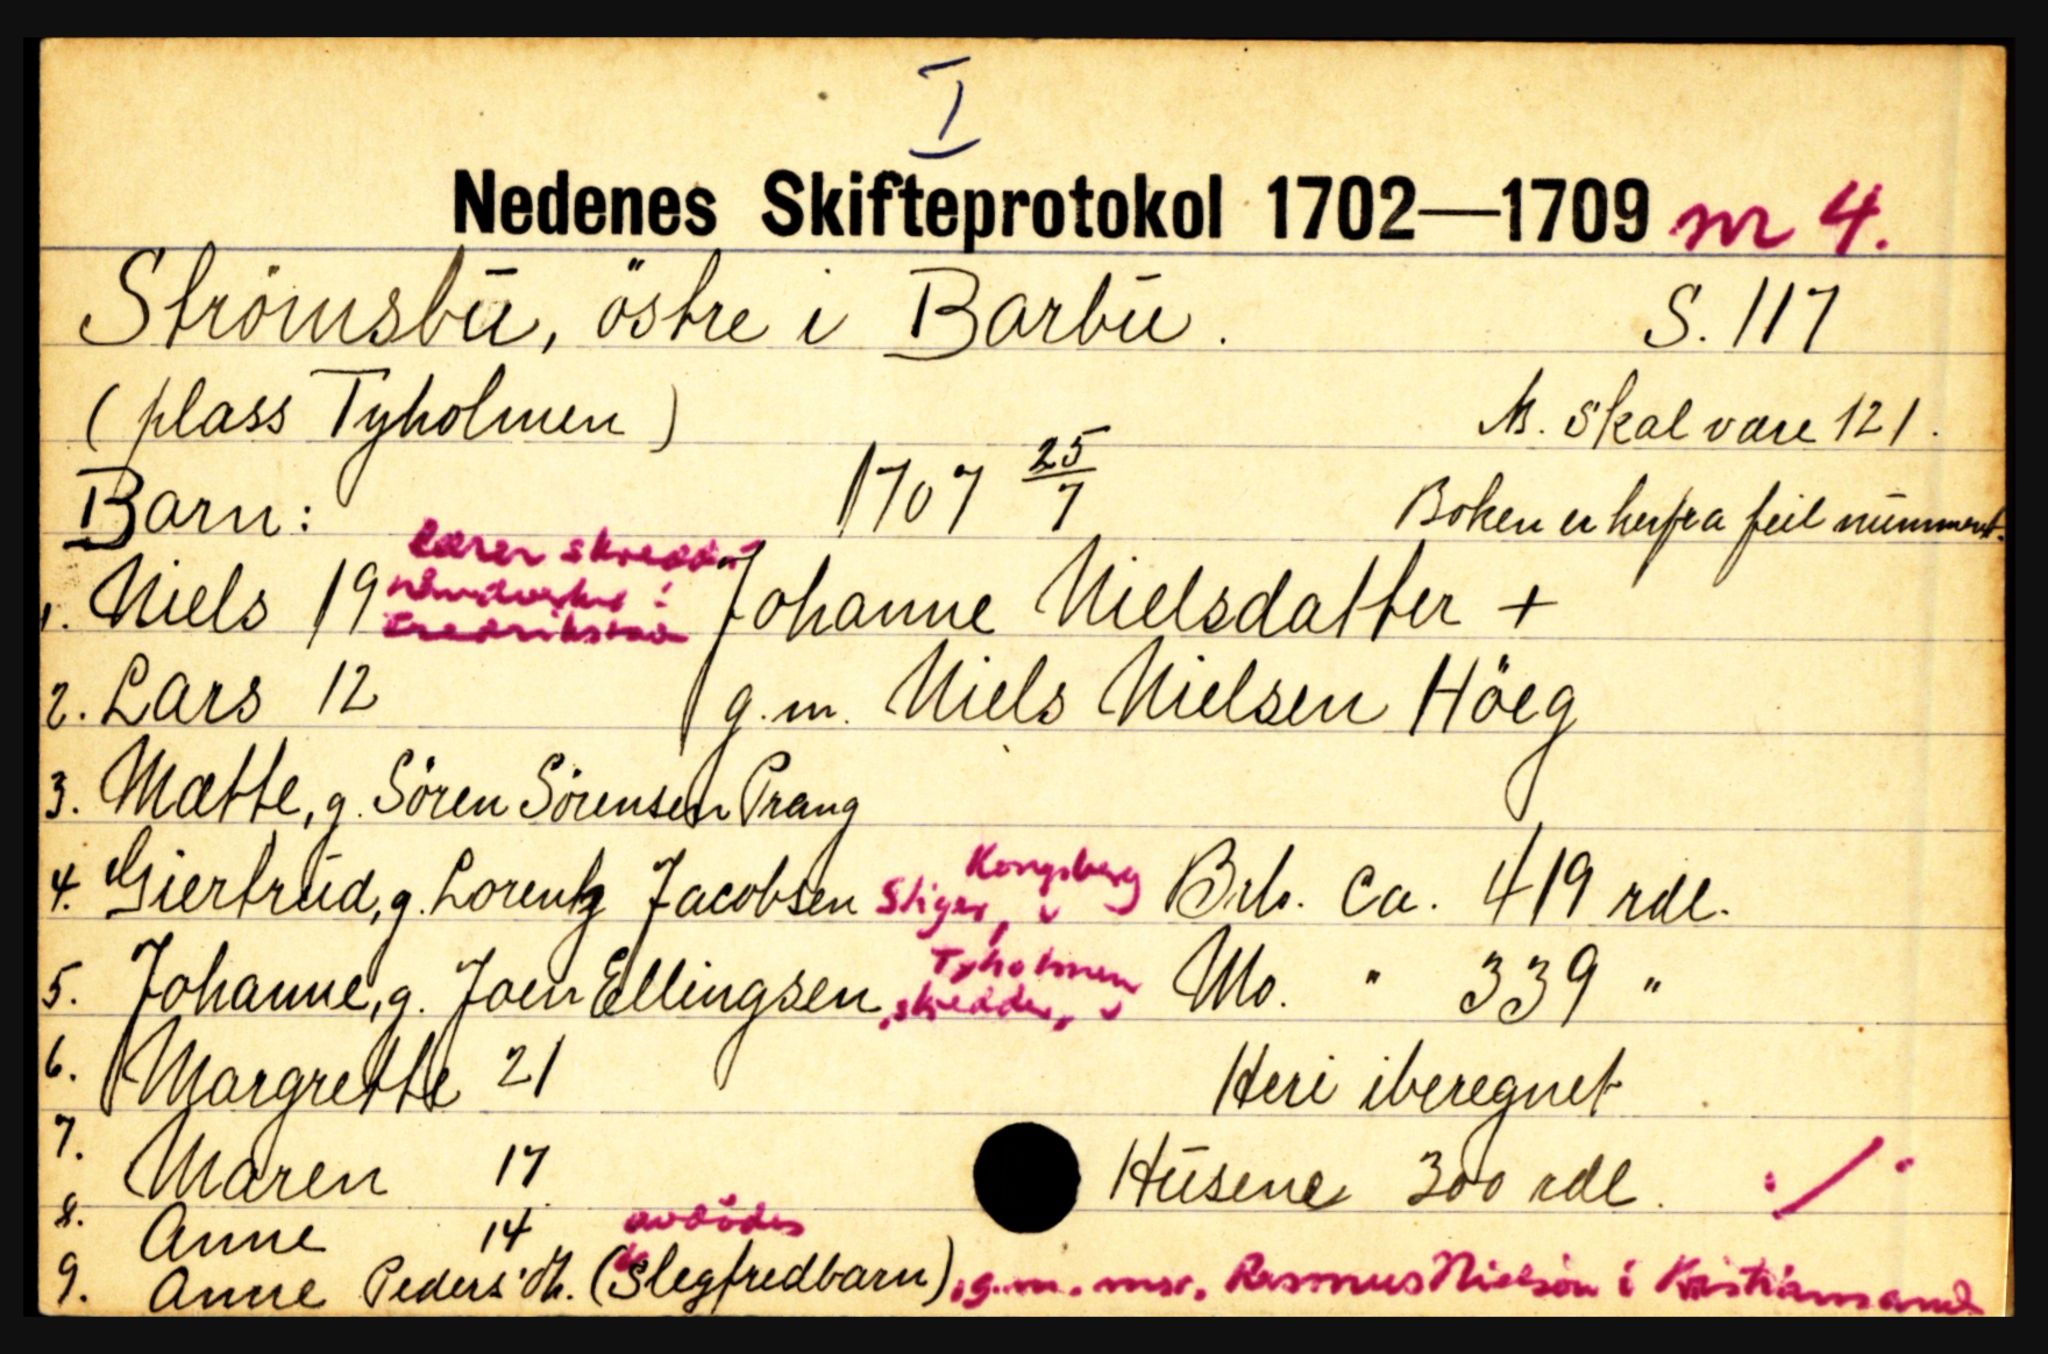 I
Nedenes Skifteprotokol 1702—1709 nr 4.
Strömsbū, östre i Barbū. S. 117
(plass Tyholmen) N. skal være 121.
Barn: 1707 25/7 Boken er herfra feil nūmmert.
lærer skredder
1. Niels 19 håndverket i Johanne Nielsdatter +
Fredrikstad
2. Lars 12 g.m. Niels Nielsen Höeg
3. Mætte, g. Sören Sörensen Prang
4. Giertrūd, g. Lorentz Jacobsen Stiger, v Kongsberg Brb. Ca. 419 rdl.
5. Johanne, g. Joen Ellingsen, skredder, v Tyholmen Mo. " 339 "
6. Margrette 21 Heri iberegnet
7. Maren 17 Hūsene 300 rdl. ./.
8. Anne 14 avdödes
9. Anne Peders'dtr. (Slegfredbarn), g.m. msr. Rasmus Nielsen i Kristiansand